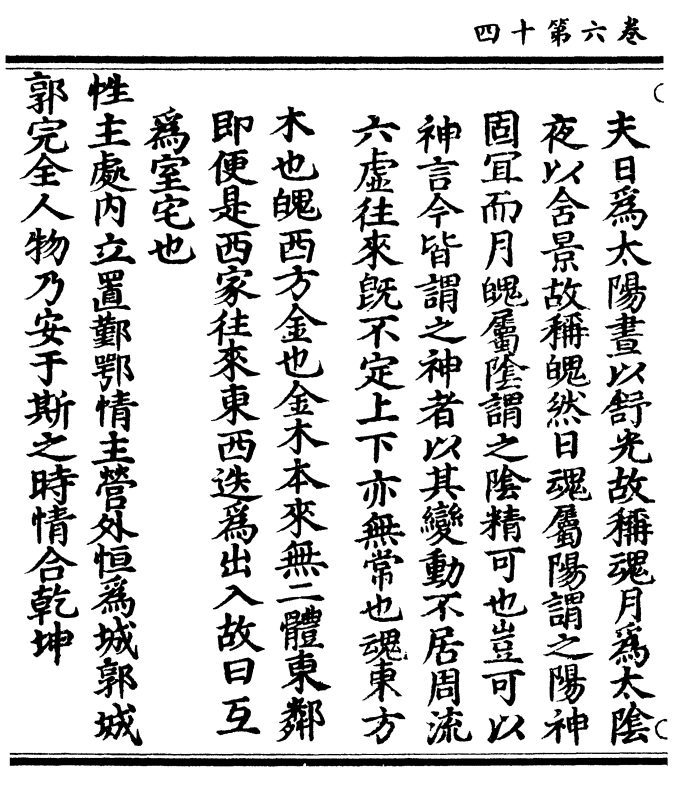 卷六第十四
夫日爲太陽晝以舒光故稱魂月爲太陰
夜以含景故稱魄然日魂屬陽謂之陽神
固宜而月魄屬陰謂之陰精可也豈可以
神言今皆謂之神者以其變動不居周流
六虛往來旣不定上下亦無常也魂東方
木也魄西方金也金木本來無二體東鄰
即便是西家往來東西迭爲出入故曰互
爲室宅也
性主處內立置鄞鄂情主營外恒爲城郭城
郭完全人物乃安于斯之時情合乾坤